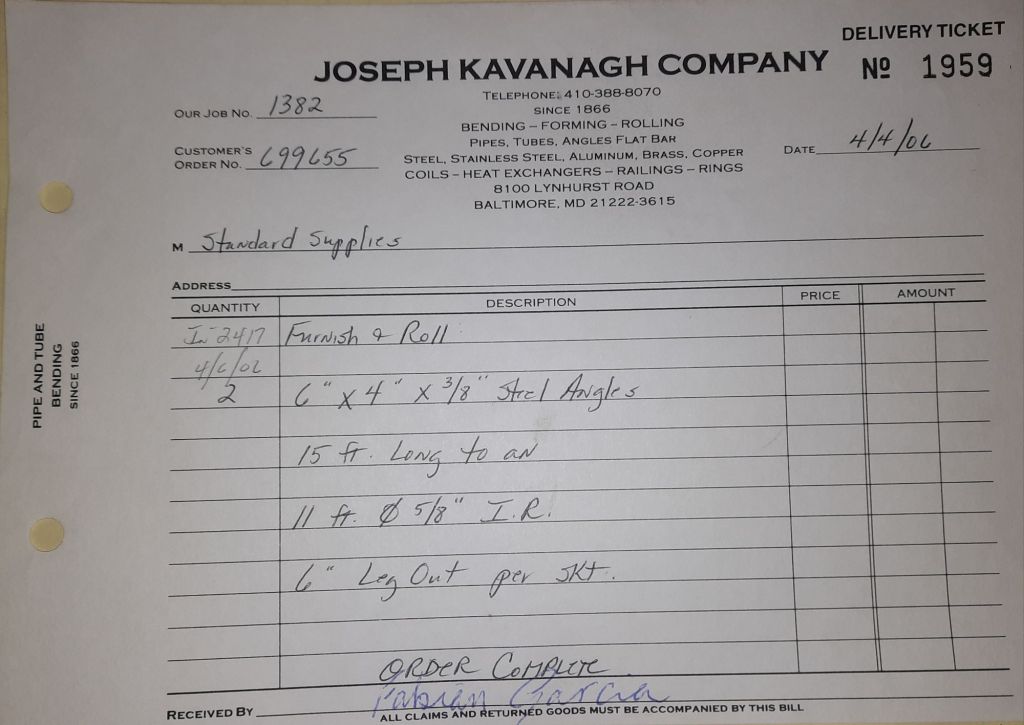 DELIVERY TICKET
JOSEPH KAVANAGH COMPANY
Nº 1959
TELEPHONE: 410-388-8070
SINCE 1866
BENDING – FORMING – ROLLING
PIPES, TUBES, ANGLES FLAT BAR
STEEL, STAINLESS STEEL, ALUMINUM, BRASS, COPPER
COILS – HEAT EXCHANGERS – RAILINGS – RINGS
8100 LYNHURST ROAD
BALTIMORE, MD 21222-3615
OUR JOB NO. 1382
CUSTOMER'S
ORDER NO. 699655
DATE 4/4/06
M Standard Supplies
ADDRESS
QUANTITY DESCRIPTION PRICE AMOUNT
In 2417 Furnish & Roll
4/6/06
2 6" x 4" x 3/8" Steel Angles
15 ft. Long to an
11 ft. Ø 5/8" I.R.
6" Leg Out per skt.
ORDER COMPLETE
RECEIVED BY Fabian Garcia
ALL CLAIMS AND RETURNED GOODS MUST BE ACCOMPANIED BY THIS BILL
PIPE AND TUBE
BENDING
SINCE 1866